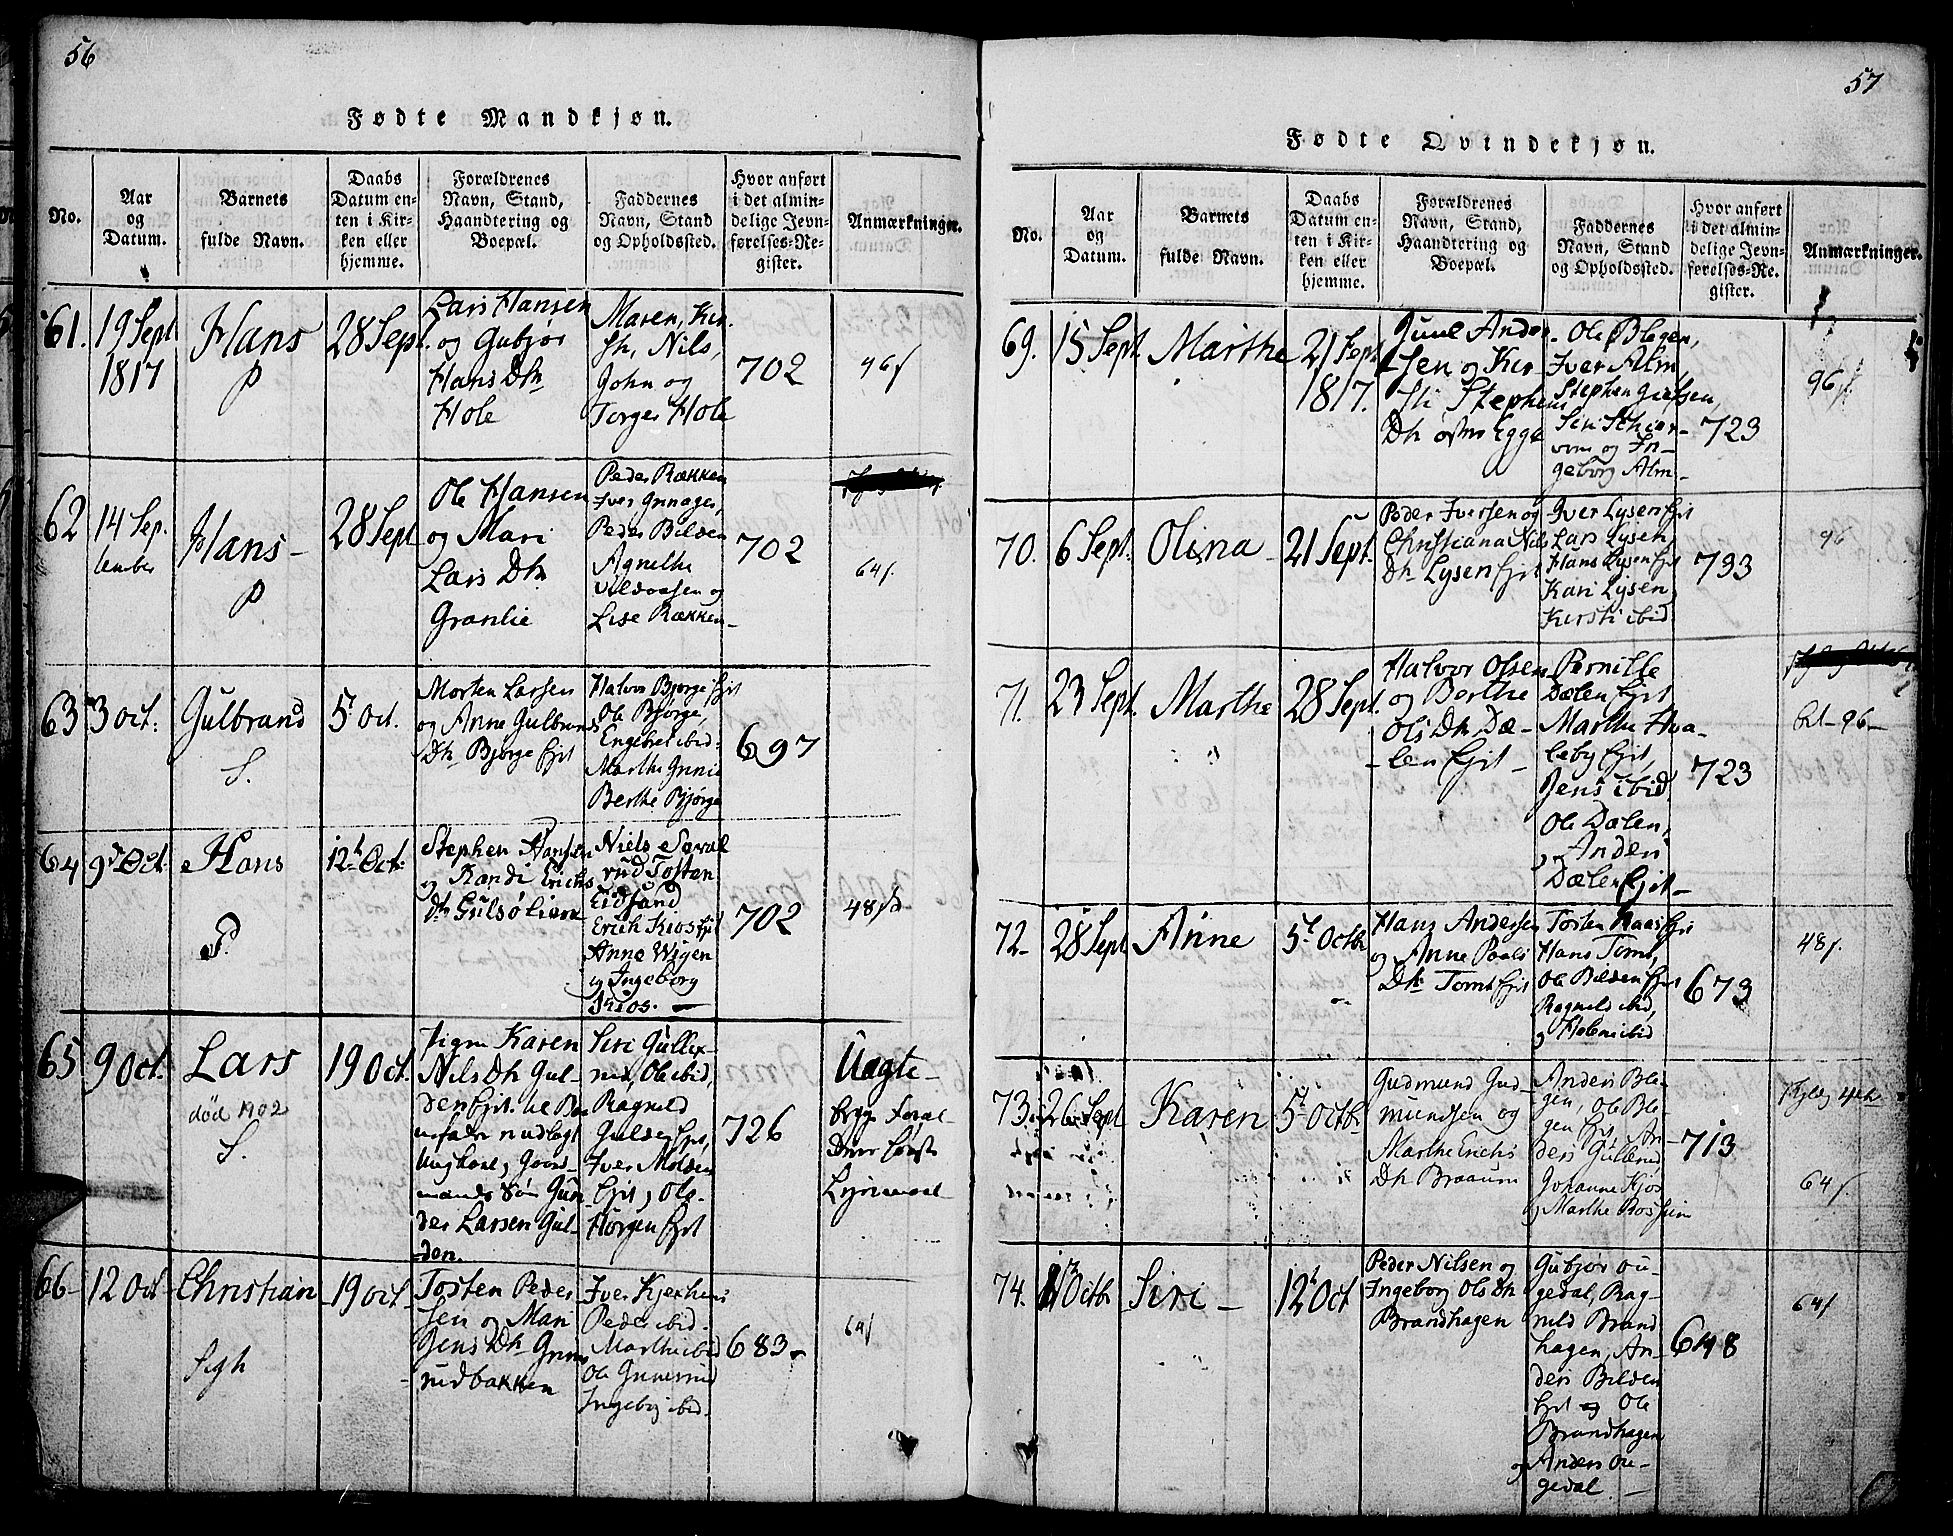 56
Fødte Mandkjøn.
No.
Aar
og
Datum.
Barnets
fulde Navn.
Daabs
Datum en-
ten i Kir-
ken eller
hjemme.
Forældrenes
Navn, Stand,
Haandtering og
Boepæl.
Faddernes
Navn, Stand
og Opholdssted.
Hvor anført
i det almin-
delige Jevn-
førelses-Re-
gister.
Anmærkninger.
61.
19 Sept
1817
Hans
P
28 Sept.
Lars Hansen
og Gubjør
Hans Dtr
Hole
Maren, Kir-
sti, Nils,
John og
Torger Hole
702
96 s
62
14 Sep-
tember
Hans
P
28 Sept
Ole Hansen
og Mari
Lars Dtr
Granlie
Peder Rækken
Iver
Peder Bilden
Agnethe
og
Lise Rækken
702
64 s.
63
3 Oct.
Gulbrand
S.
5 Oct.
Morten Larsen
og Anne Gulbrands
Dtr Bjørge Ejet
Halvor Bjørge Ejet
Ole Bjørge,
Engebret ibid
Marthe
Berthe Bjørge
697
64
9 Oct.
Hans
P.
12t Oct.
Stephen Hansen
og Randi Erichs
Dtr
Niels
rud Tosten
Eidsand
Erich Kios Ejet
Anne Wigen
og Ingeborg
Kios.
702
48 s
65
9 Oct.
Lars
død 1902
S.
19 Oct.
Pigen Karen
Nils Dtr Gul-
den Ejet.
Ungkarl, Gaard-
mands Søn Gun-
der Larsen Gul-
den.
Siri Gullex-
rud, Ole ibid,
Ragnild
Gulden Ejet,
Iver Molden
Ejet, Ole
Horgen Ejet
726
Uægte
begge Foræl-
dres første
Leiermaal
66
12 Oct
Christian
Sgh
19 Oct.
Tosten Peder-
sen og Mari
Jens Dtr
rudbakken
Iver
Peder ibid.
Marthe ibid
Ole
Ingeborg ibid.
683
64 s
57
Fødte Qvindekjøn.
No.
Aar
og
Datum.
Barnets
fulde Navn.
Daabs
Datum en-
ten i Kir-
ken eller
hjemme.
Forældrenes
Navn, Stand,
Haandtering og
Boepæl.
Faddernes
Navn, Stand
og Opholdssted.
Hvor anført
i det almin-
delige Jevn-
førelses-Re-
gister.
Anmærkninger.
69.
15 Sept.
Marthe
21 Sept
1817.
Juul Ander-
sen og Kir-
sti Stephens
Dtr østre Egge
Ole Blegen,
Iver Alm,
Stephen
Siri
og In-
geborg Alm
723
96 s
70.
6 Sept.
Olina
21 Sept.
Peder Iversen og
Christiana Nils
Dtr Lysen Ejet
Iver Lysen Ejet
Lars Lysen,
Hans Lysen Ejet
Kari Lysen,
Kirsti ibid
733
96
71.
23 Sept.
Marthe
28 Sept.
Halvor Olsen
og Berthe
Ols Dtr Dæ-
len Ejet
Pernille
Dælen Ejet
Marthe Hva-
leby Ejet,
Jens ibid
Ole Dælen,
og Anders
Dælen Ejet
723
96
72
28 Sept
Anne
5t Octbr
Hans Andersen
og Anne Pauls
Dtr Tomt Ejet
Torsten Haas Ejet
Hans Tomt,
Ole Bilden Ejet
Ragnild ibid,
og Helene ibid
673
48 s.
73.
26 Sept
Karen
5t Octbr
Gudmund Gud-
mundsen og
Marthe Erichs
Dtr Braaum
Anders Ble-
gen, Ole Ble-
gen Ejet, An-
ders Gullerud
Johanne Kjos
og Marthe
713
64 s.
74.
Octbr
Siri
12t Oct
Peder Nilsen og
Ingeborg Ols Dtr
Brandhagen
Gubjør Ou-
gedal, Rag-
nild Brand
hagen, An-
ders Bilden
Ejet og Ole
Brandhagen
og Anders Ou-
gedal
648
64 s